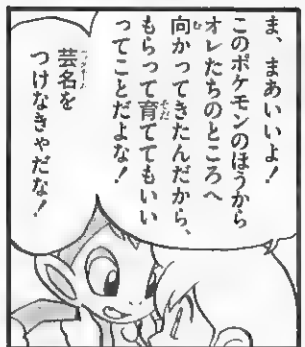 ま、まあいいよ!
このポケモンのほうから
オレたちのところへ
向かってきたんだから、
もらって育ててもいい
ってことだよな!
芸名を
つけなきゃだな!